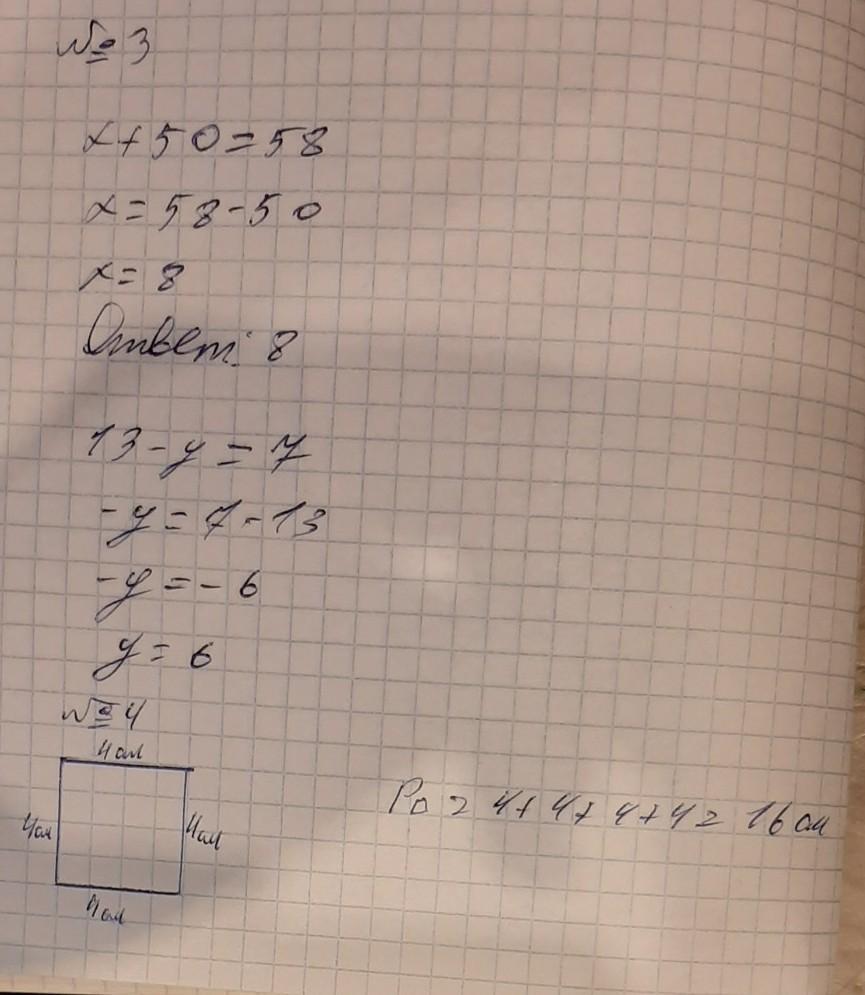 № 3
x+50=58
x=58-50
x=8
Ответ: 8
13-y=7
-y=7-13
-y=-6
y=6
№ 4
4см
4см 4см
4см
P□ = 4+4+4+4= 16 см